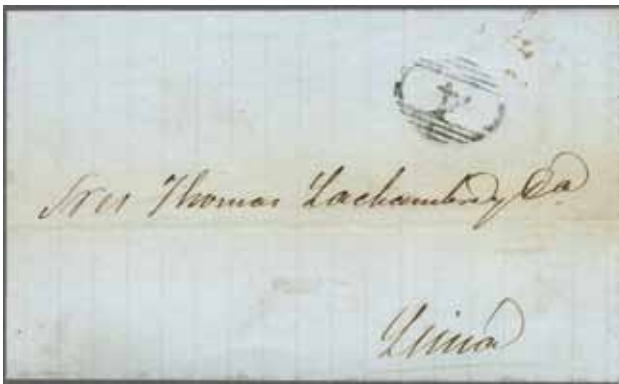 Sres Thomas Lachambre y Ca
Lima